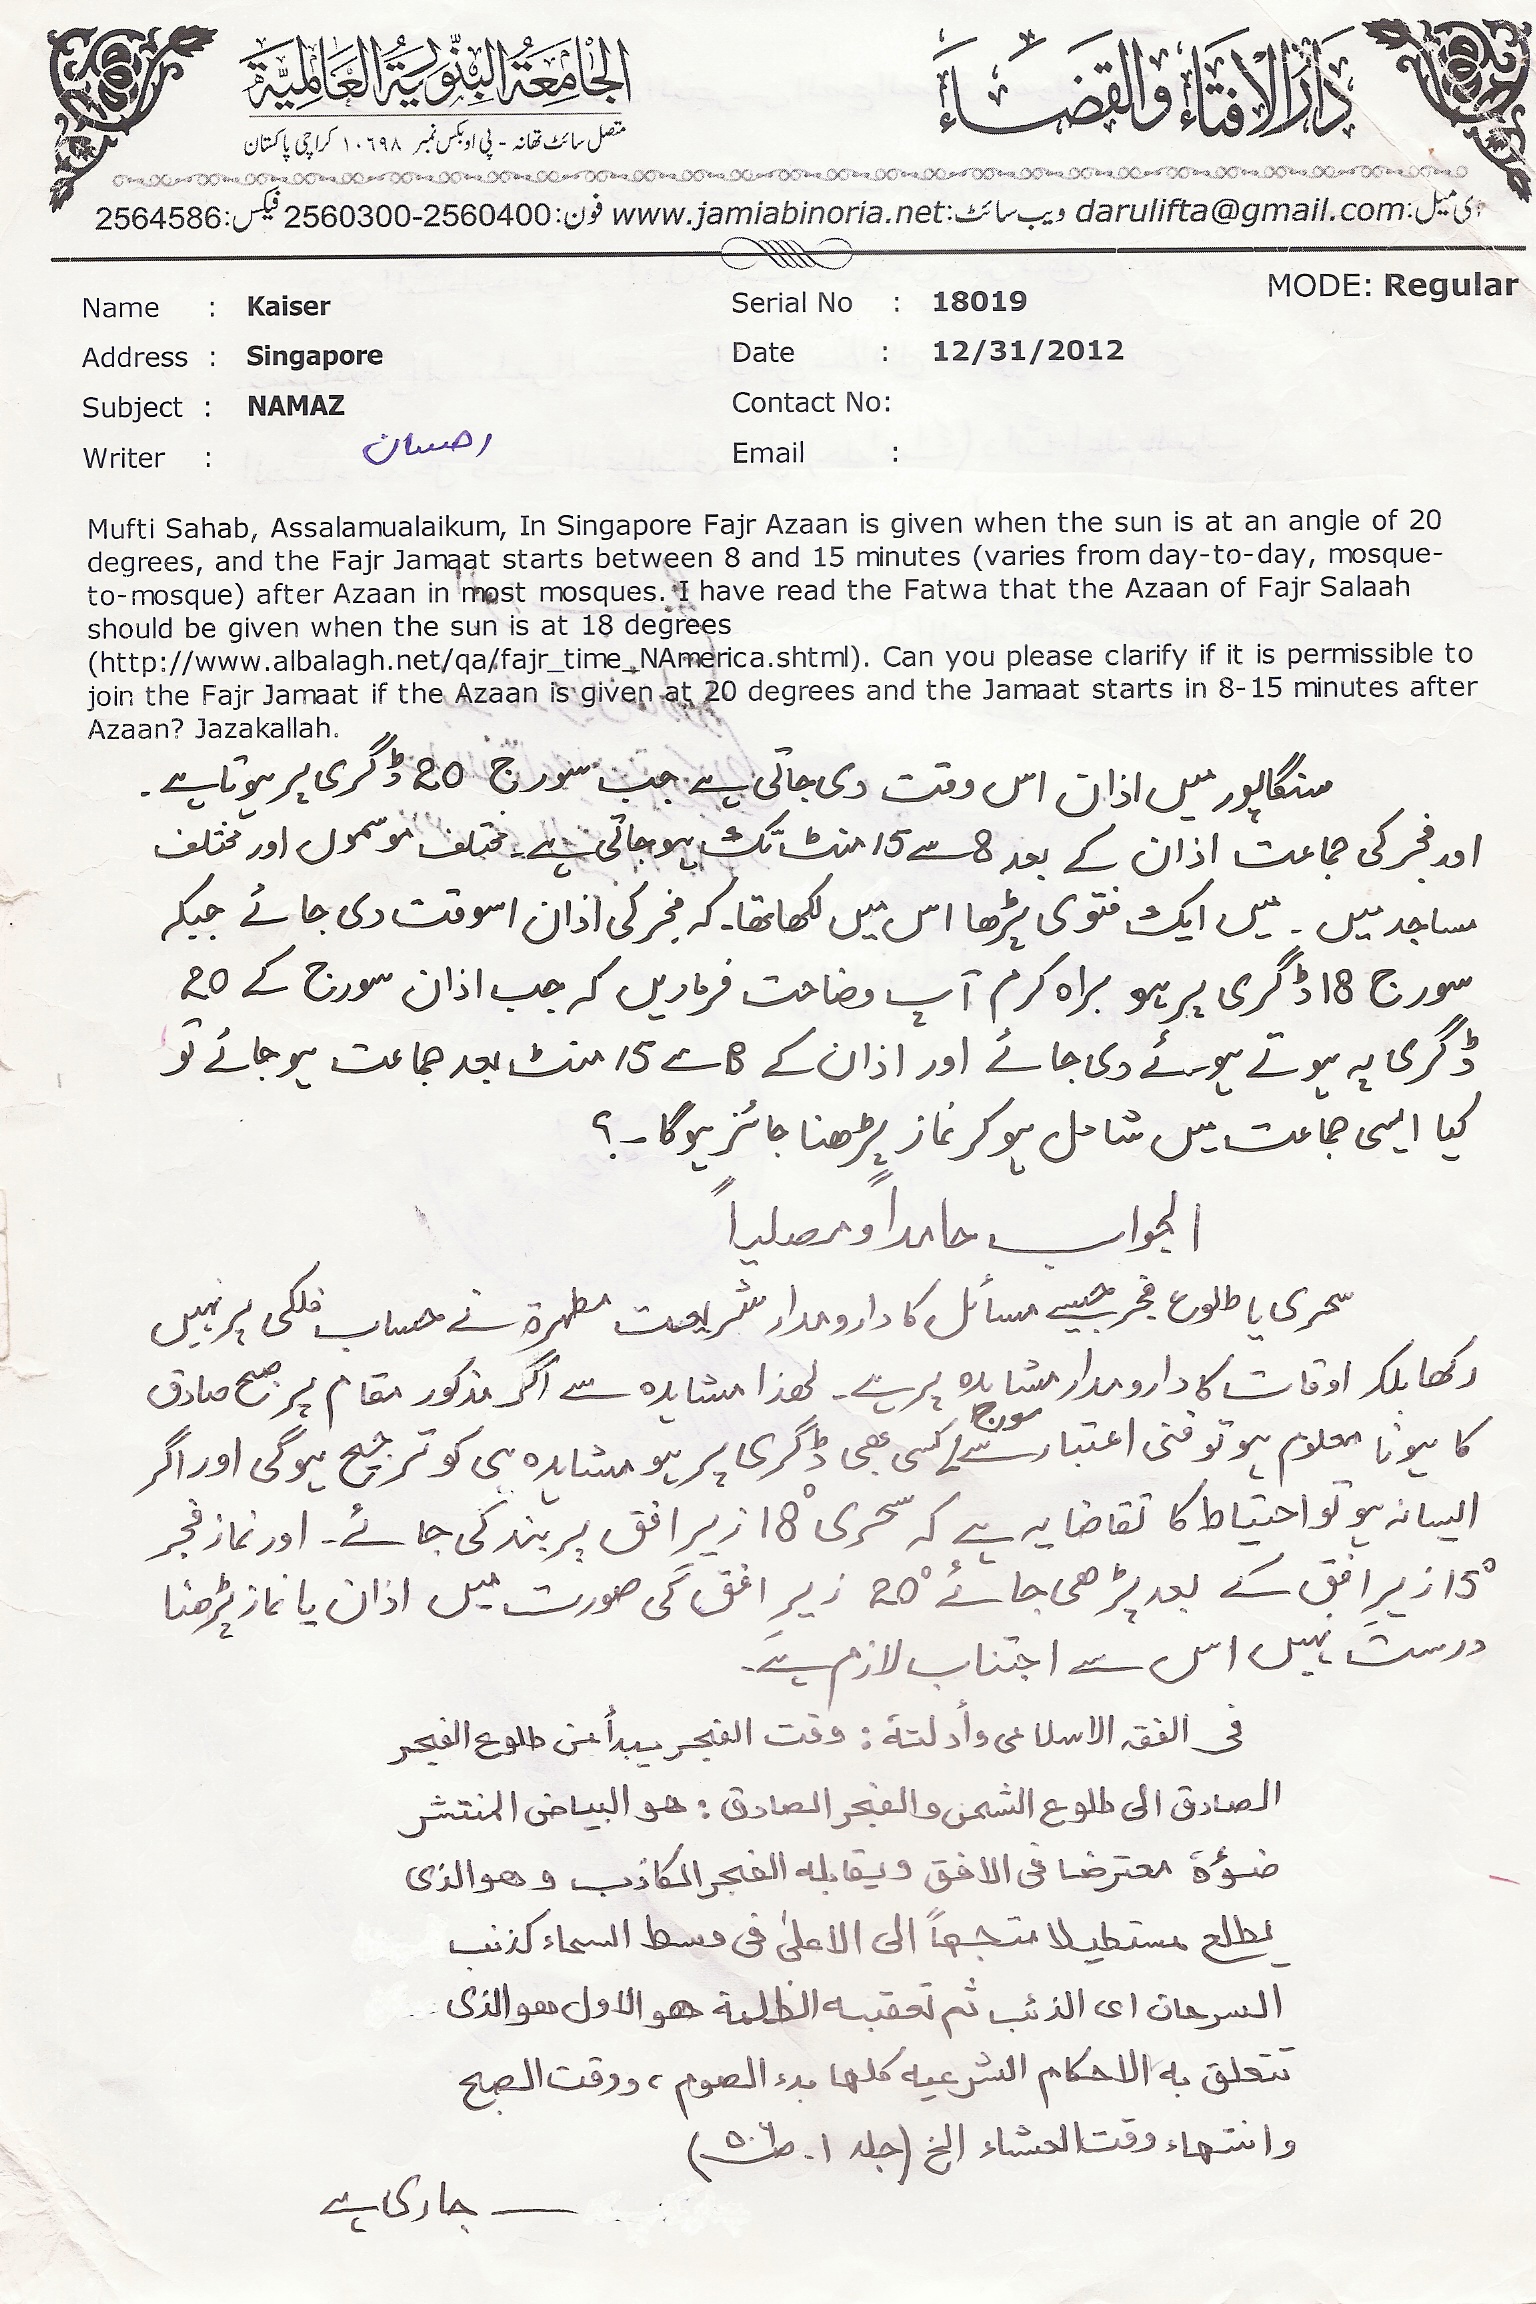 الجامعة البنورية العالمية
دار الافتاء والقضاء
متصل سائٹ تھانہ - پی او بکس نمبر ۱۰۶۹۸ کراچی پاکستان
ای میل: darulifta@gmail.com ویب سائٹ: www.jamiabinoria.net فون: 2560300-2560400 فیکس: 2564586
MODE: Regular
Name : Kaiser Serial No : 18019
Address : Singapore Date : 12/31/2012
Subject : NAMAZ Contact No:
Writer : احسان Email :
Mufti Sahab, Assalamualaikum, In Singapore Fajr Azaan is given when the sun is at an angle of 20
degrees, and the Fajr Jamaat starts between 8 and 15 minutes (varies from day-to-day, mosque-
to-mosque) after Azaan in most mosques. I have read the Fatwa that the Azaan of Fajr Salaah
should be given when the sun is at 18 degrees
(http://www.albalagh.net/qa/fajr_time_NAmerica.shtml). Can you please clarify if it is permissible to
join the Fajr Jamaat if the Azaan is given at 20 degrees and the Jamaat starts in 8-15 minutes after
Azaan? Jazakallah.
سنگاپور میں اذان اس وقت دی جاتی ہے جب سورج 20 ڈگری پر ہوتا ہے۔
اور فجر کی جماعت اذان کے بعد 8 سے 15 منٹ تک ہو جاتی ہے۔ مختلف موسموں اور مختلف
مساجد میں ۔ میں ایک فتوی پڑھا اس میں لکھا تھا۔ کہ فجر کی اذان اسوقت دی جائے جبکہ
سورج 18 ڈگری پر ہو براہ کرم آپ وضاحت فرمادیں کہ جب اذان سورج کے 20
ڈگری پہ ہوتے ہوئے دی جائے اور اذان کے 8 سے 15 منٹ بعد جماعت ہو جائے تو
کیا ایسی جماعت میں شامل ہو کر نماز پڑھنا جائز ہوگا ۔؟
الجواب حامداً ومصلیاً
سحری یا طلوع فجر جیسے مسائل کا دارومدار شریعت مطہرۃ نے حساب فلکی پر نہیں
رکھا بلکہ اوقات کا دارومدار مشاہدہ پر ہے۔ لھذا مشاہدہ سے اگر مذکور مقام پر صبح صادق
کا ہونا معلوم ہو تو فنی اعتبار سے سورج کسی بھی ڈگری پر ہو مشاہدہ ہی کو ترجیح ہوگی اور اگر
ایسا نہ ہو تو احتیاط کا تقاضا یہ ہے کہ سحری 18° زیر افق پر بند کی جائے۔ اور نماز فجر
15° زیرِ افق کے بعد پڑھی جائے 20° زیرِ افق کی صورت میں اذان یا نماز پڑھنا
درست نہیں اس سے اجتناب لازم ہے۔
فی الفقہ الاسلامی وأدلتۃ : وقت الفجر یبدأ من طلوع الفجر
الصادق الی طلوع الشمس والفجر الصادق : هو البیاض المنتشر
ضوؤہ معترضا فی الافق ویقابله الفجر الکاذب وهو الذی
یطلع مستطیلا متجهاً الی الاعلیٰ فی وسط السماء کذنب
السرحان ای الذئب ثم تعقبه الظلمة هو الاول هو الذی
تتعلق به الاحکام الشرعیه کلها بدء الصوم ، ووقت الصبح
وانتهاء وقت العشاء الخ (جلد ۱۔
جاری ہے